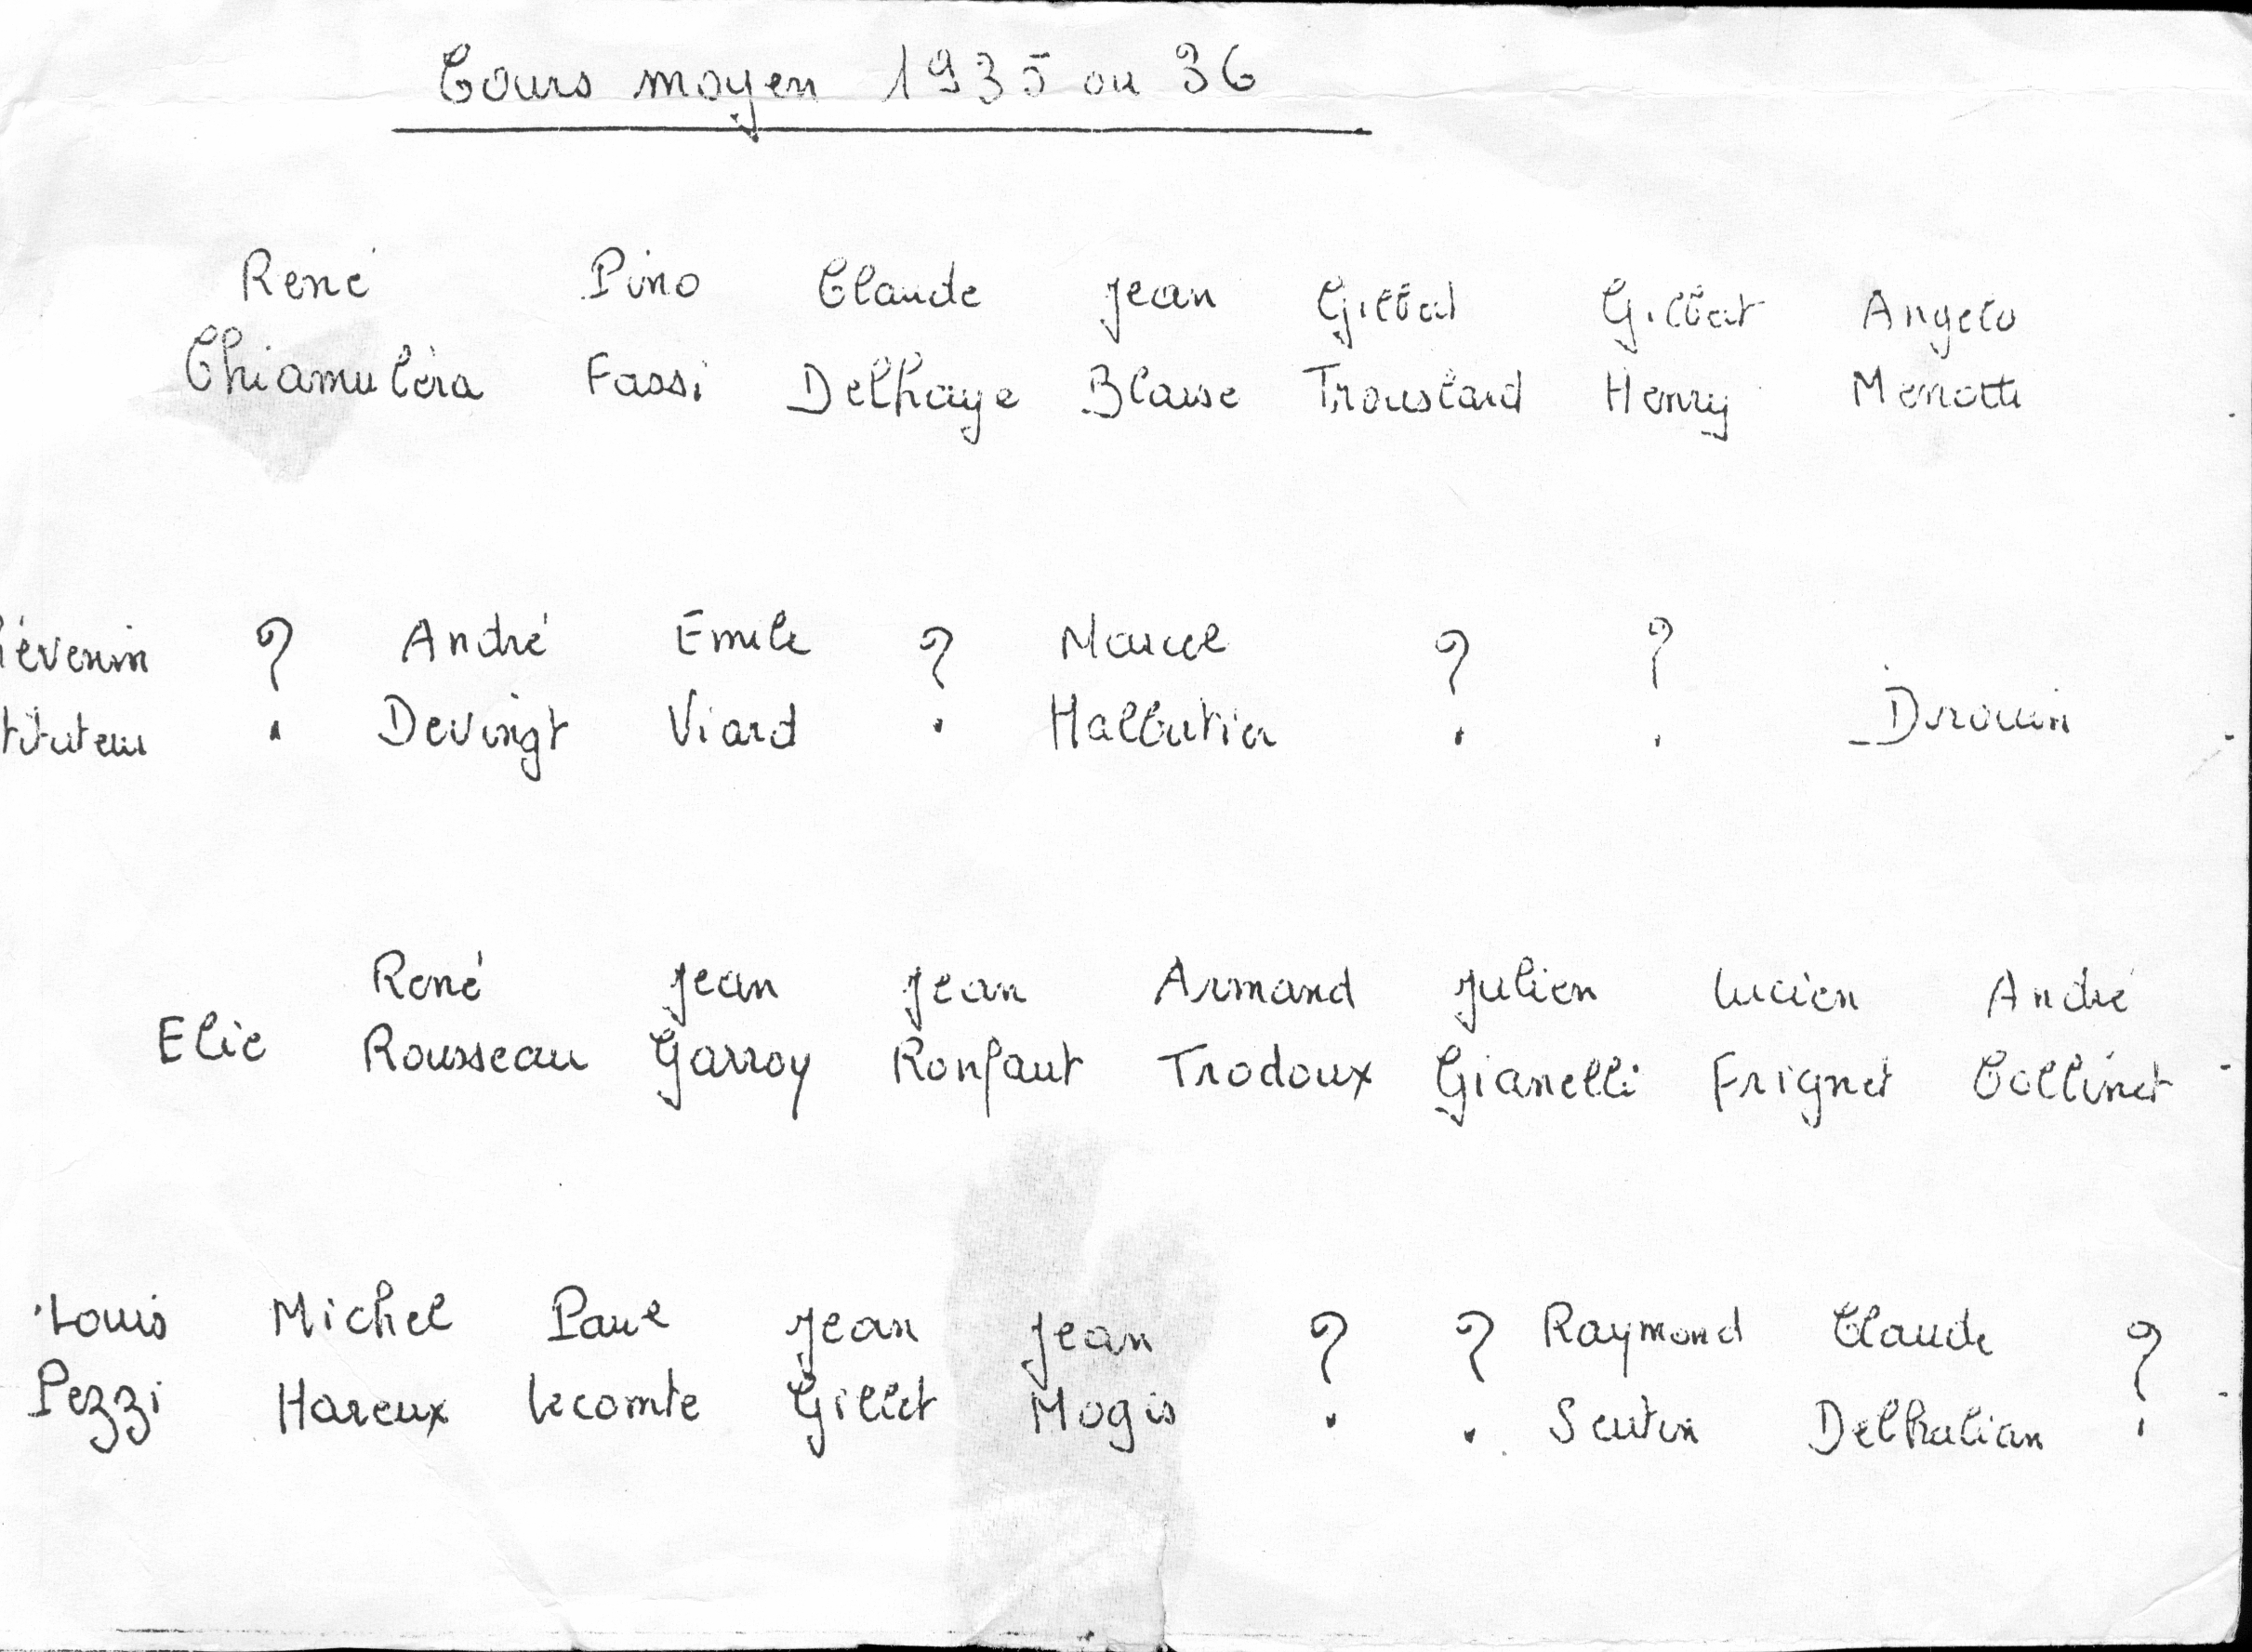 Cours moyen 1935 ou 36
René Pino Claude Jean Gilbert Gilbert Angelo
Chiamuléra Fassi Delhaye Blaise Trouslard Henry Menotti
évenin ? André Emile ? Marcel ? ?
tituteur Devingt Viard Halbutier Drouin
René Jean Jean Armand Julien Lucien André
Elie Rousseau Garroy Ronfaut Trodoux Gianelli Frignet Collinet
Louis Michel Paul Jean Jean ? ? Raymond Claude ?
Pezzi Hareux Lecomte Gillet Mogis Seutin Delhalian